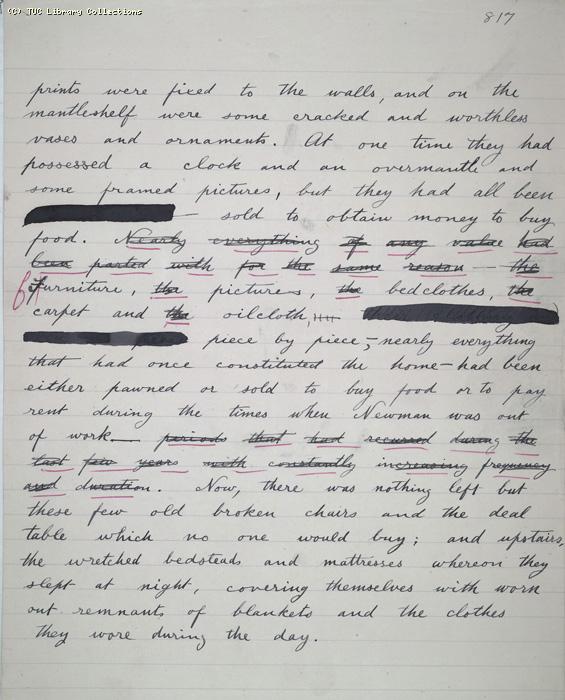 (C) TUC Library Collections
817
prints were fixed to the walls, and on the
mantleshelf were some cracked and worthless
vases and ornaments. At one time they had
possessed a clock and an overmantle and
some framed pictures, but they had all been
— sold to obtain money to buy
food. Nearly everything of any value had
been parted with for the same reason — the
furniture, the pictures, the bedclothes, the
carpet and the oilcloth,
piece by piece,—nearly everything
that had once constituted the home—had been
either pawned or sold to buy food or to pay
rent during the times when Newman was out
of work— periods that had recurred during the
last few years with constantly increasing frequency
and duration. Now, there was nothing left but
these few old broken chairs and the deal
table which no one would buy; and upstairs,
the wretched bedsteads and mattresses whereon they
slept at night, covering themselves with worn
out remnants of blankets and the clothes
they wore during the day.